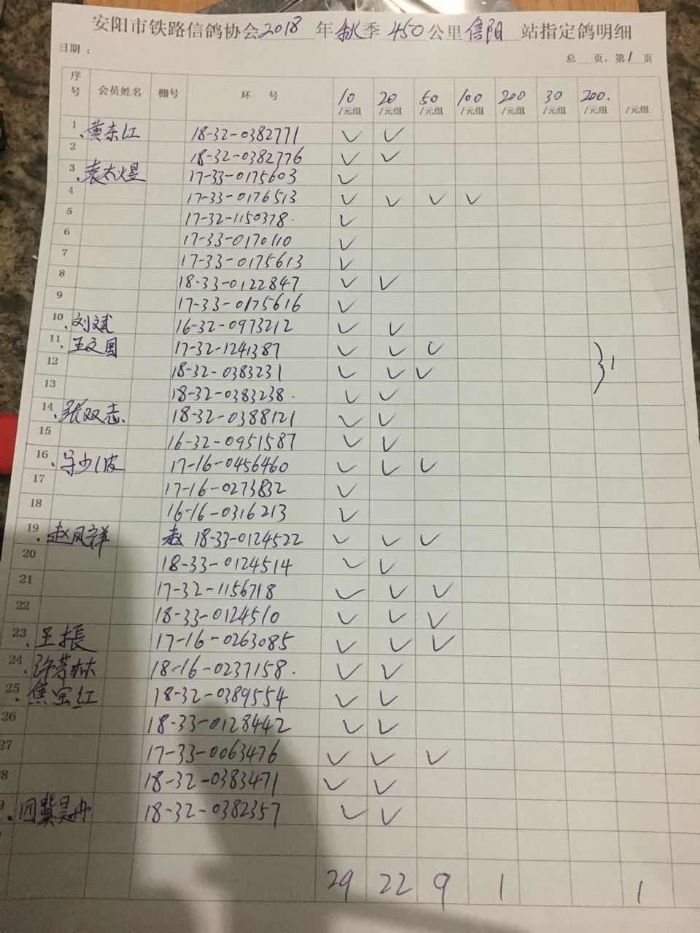 安阳市铁路信鸽协会2018年秋季450公里信阳站指定鸽明细
日期： 总 页，第1页
序号 会员姓名 棚号 环号 10/元组 20/元组 50/元组 100/元组 200/元组 30/元组 200./元组 /元组
1 黄东红 18-32-0382771 ✓ ✓
2 18-32-0382776 ✓ ✓
3 袁太煜 17-33-0175603 ✓
4 17-33-0176513 ✓ ✓ ✓ ✓
5 17-32-1150378. ✓
6 17-33-0170110 ✓
7 17-33-0175613 ✓
8 18-33-0122847 ✓ ✓
9 17-33-0175616 ✓
10 刘斌 16-32-0973212 ✓ ✓
11 王文国 17-32-1241387 ✓ ✓ ✓
12 18-32-0383231 ✓ ✓ ✓ } 1
13 18-32-0383238. ✓ ✓
14 张双志 18-32-0388121 ✓ ✓
15 16-32-0951587 ✓ ✓
16 少波 17-16-0456460 ✓ ✓ ✓
17 17-16-0273832 ✓
18 16-16-0316213 ✓
19 赵凤祥 18-33-0124522 ✓ ✓ ✓
20 18-33-0124514 ✓ ✓
21 17-32-1156718 ✓ ✓ ✓
22 18-33-0124510 ✓ ✓ ✓
23 王振 17-16-0263085 ✓ ✓ ✓
24 许芳林 18-16-0237158. ✓ ✓
25 焦宝红 18-32-0389554 ✓ ✓
26 18-33-0128442 ✓ ✓
27 17-33-0063476 ✓ ✓ ✓
8 18-32-0383471 ✓ ✓
9 冀昊冉 18-32-0382357 ✓ ✓
29 22 9 1 1